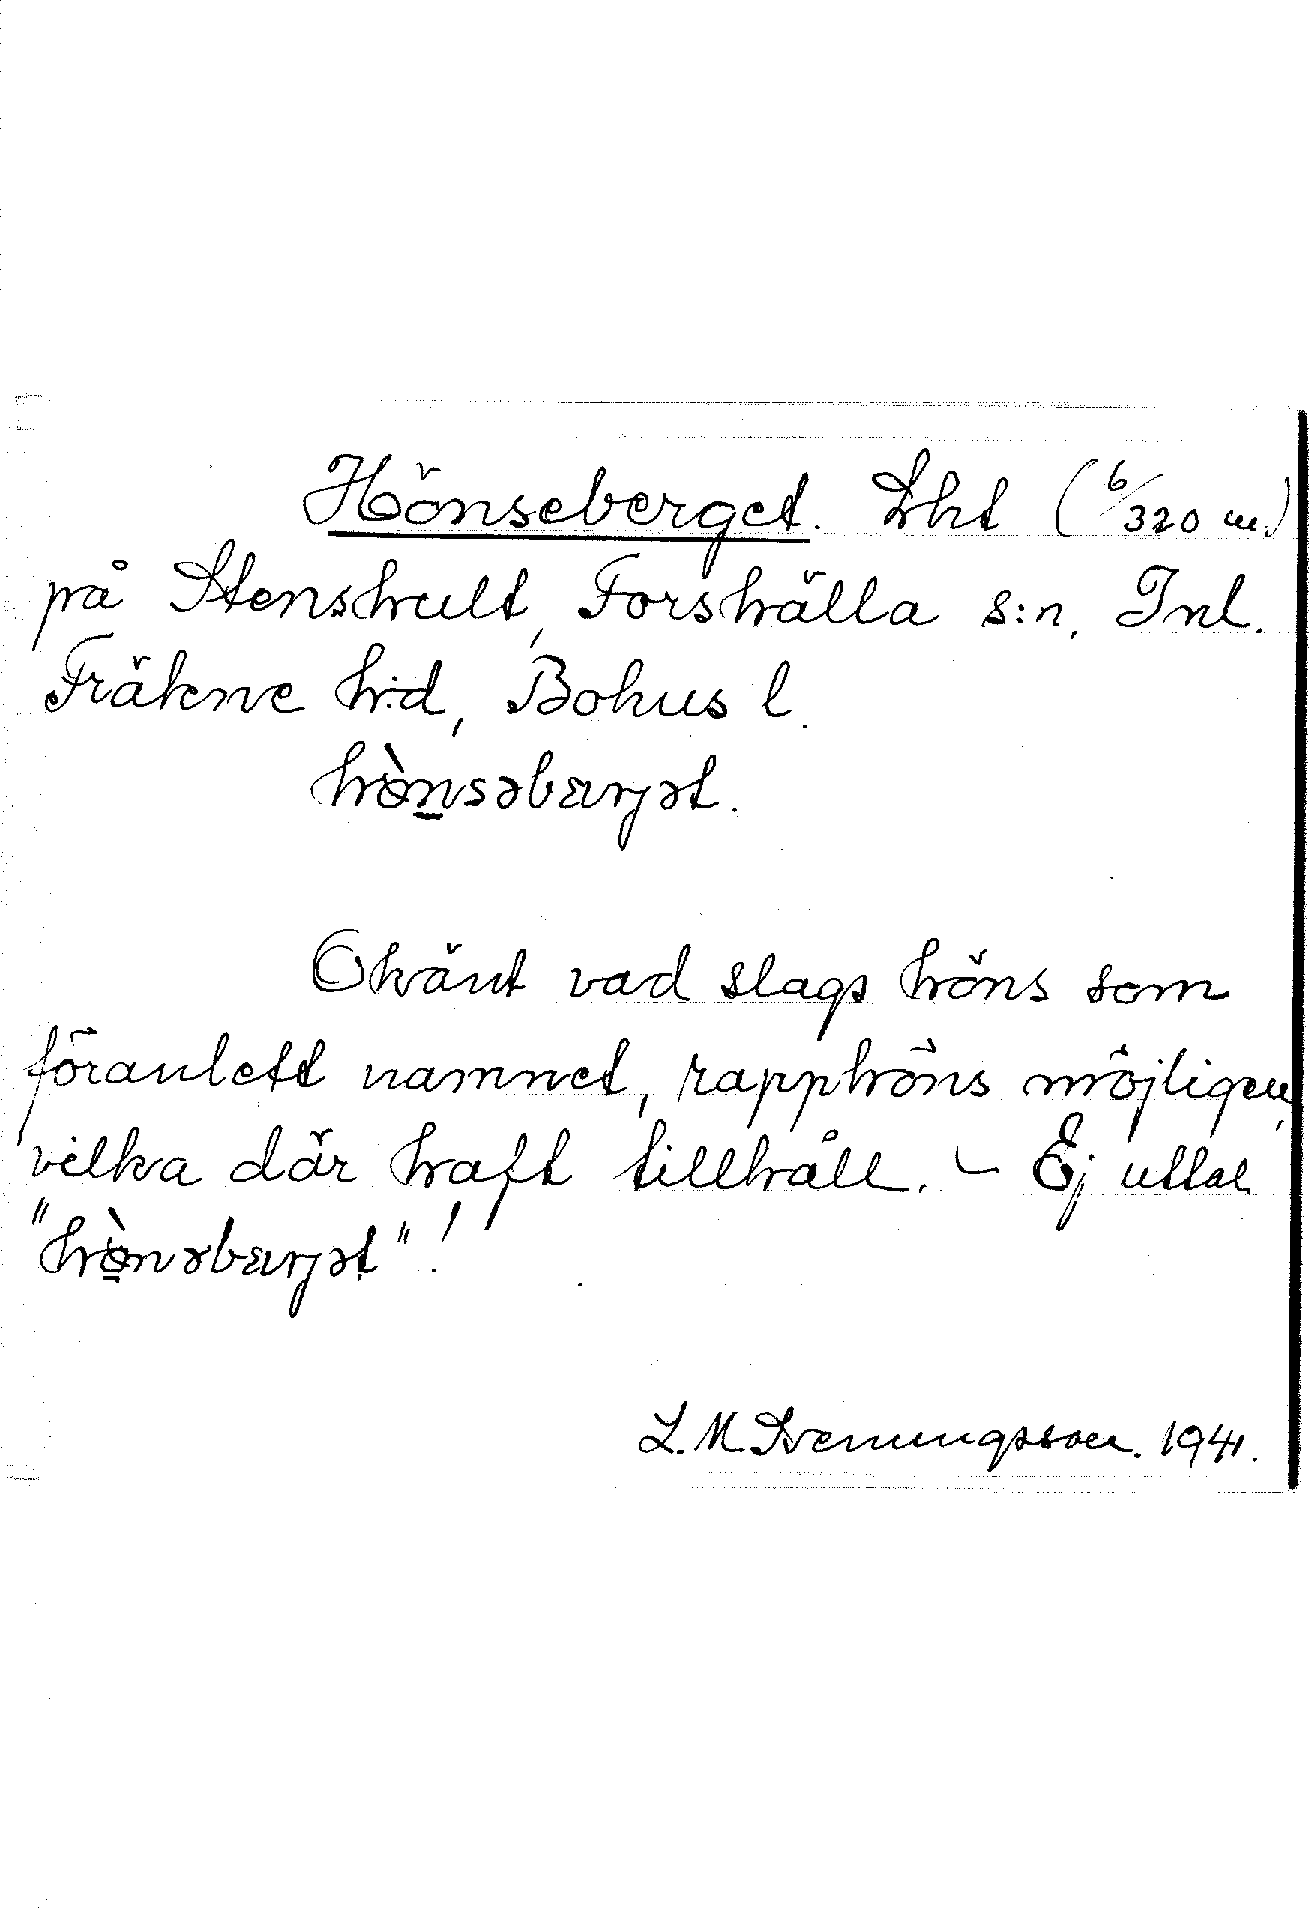 Hönseberget. Lht (6/320 m.)
på Stenshult, Forshälla s:n, Inl.
Fräkne h:d, Bohus l.
hø̀nsəbærjət.
Okänt vad slags höns som
föranlett namnet, rapphöns möjligen,
vilka där haft tillhåll. – Ej uttal
"hø̀nəbærjət"!
L. M. Svenungsson. 1941.